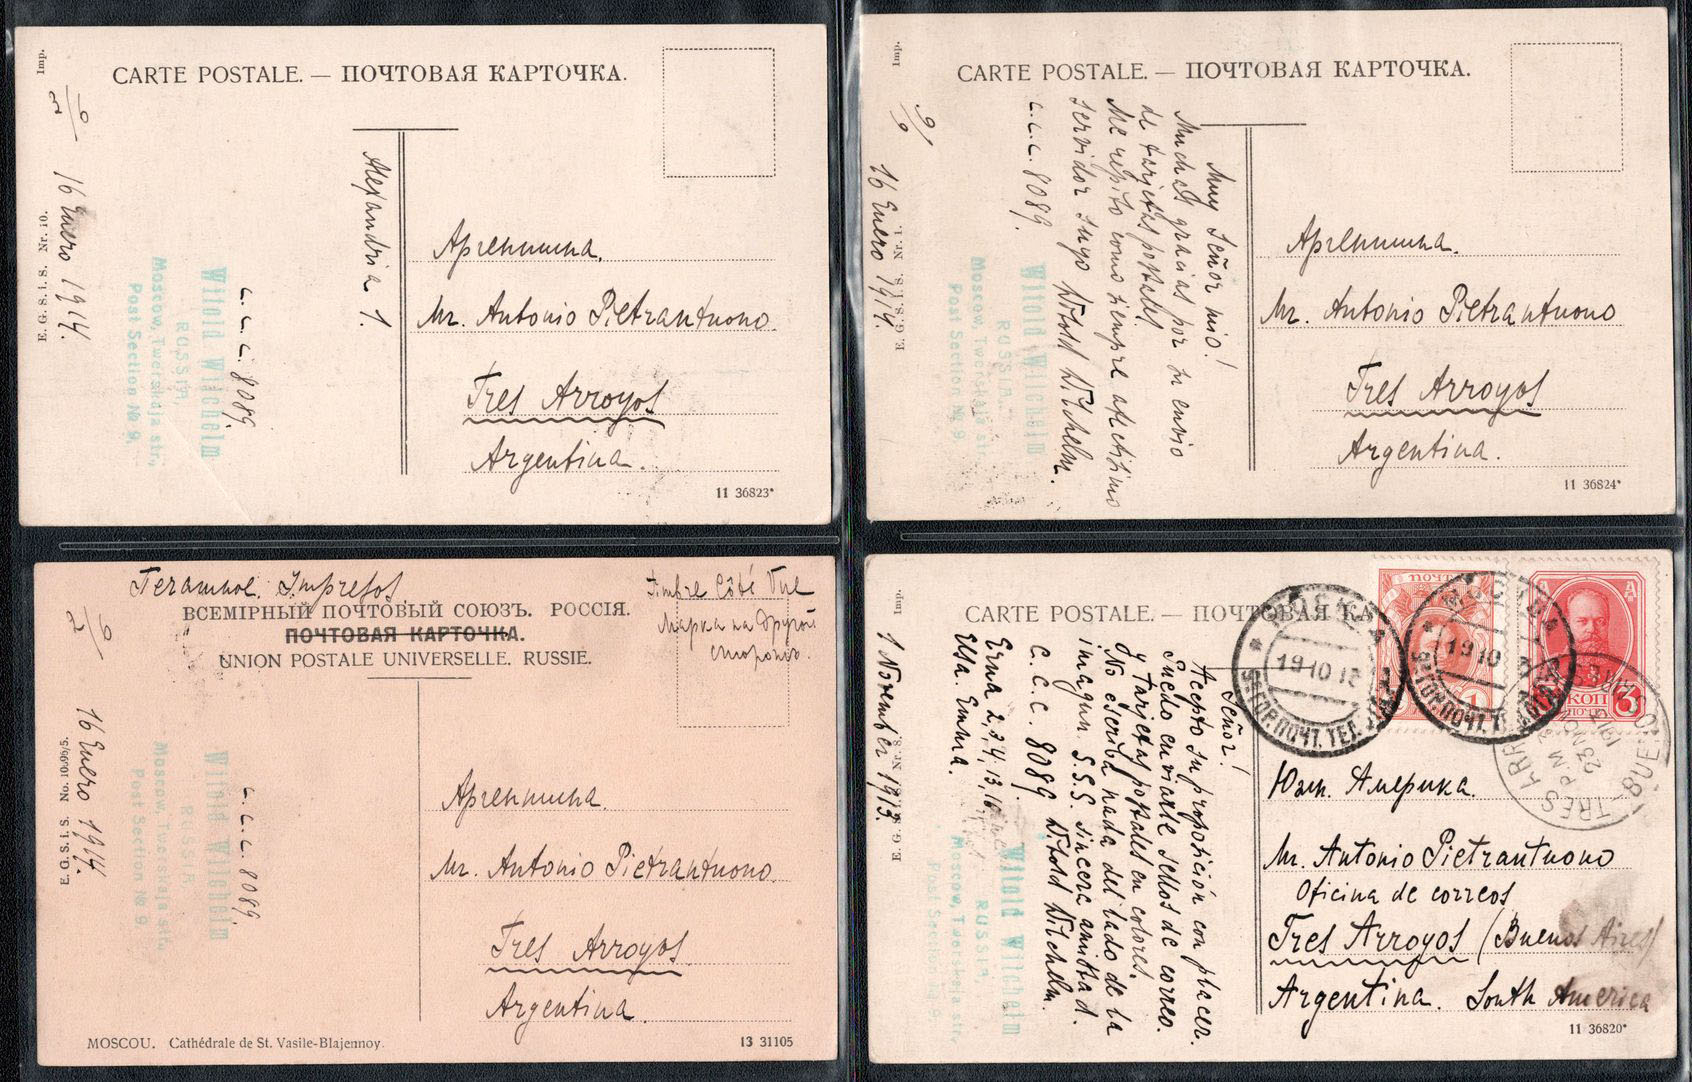 Imp.
CARTE POSTALE. — ПОЧТОВАЯ КАРТОЧКА.
E. G. S. i. S. Nr. 10.
16 Enero 1914.
Alexandria 1.
c. c. c. 8089.
Witold Wilchelm
RUSSIA,
Moscow, Twerskaja str.,
Post Section № 9.
Аргентина.
Mr. Antonio Pietrantuono.
Tres Arroyos
Argentina.
11 36823*
Imp.
CARTE POSTALE. — ПОЧТОВАЯ КАРТОЧКА.
9/9
E. G. S. i. S. Nr. 1.
16 Enero 1914.
Muy Señor mio!
Muchas gracias por su envio
de tarjetas postales.
Me repito como siempre afectisimo
servidor suyo Witold Wilchelm.
c. c. c. 8089.
Witold Wilchelm
RUSSIA.
Moscow, Twerskaja str.
Post Section № 9.
Аргентина.
Mr. Antonio Pietrantuono
Tres Arroyos
Argentina.
11 36824*
Impresos
Timbre Côté Vue
Марка на другой
стороне.
ВСЕМІРНЫЙ ПОЧТОВЫЙ СОЮЗЪ. РОССІЯ.
ПОЧТОВАЯ КАРТОЧКА.
UNION POSTALE UNIVERSELLE. RUSSIE.
E. G. S. i. S. No.
16 Enero 1914.
c. c. c. 8089.
Witold Wilchelm
RUSSIA
Moscow, Twerskaja str.,
Post Section № 9.
Аргентина.
Mr. Antonio Pietrantuono.
Tres Arroyos.
Argentina.
MOSCOU. Cathédrale de St. Vasile-Blajennoy.
13 31105
Imp.
CARTE POSTALE. — ПОЧТОВАЯ КА
E. G. S. i. S. Nr.
1 November 1913.
Señor!
Acepto su proposición con placer.
Puedo enviarle sellos de correo
y tarjetas postales en colores.
No escriba nada del lado de la
imagen. S.S.S. sincera amistad.
C. C. C. 8089 Witold Wilchelm.
Erna 2, 3, 4, 13, 16
Elsa. Emma.
Witold Wilchelm
RUSSIA,
Moscow, Twerskaja str.
Post Section № 9.
МОСКВА
19 10 13
МОСКВА
19 10
ПОЧТ
1
3
КОП
TRES ARR
BUENOS AIRES
23 NO
Южн. Америка.
Mr. Antonio Pietrantuono
Oficina de correos
Tres Arroyos (Buenos Aires)
Argentina. South America
11 36820*